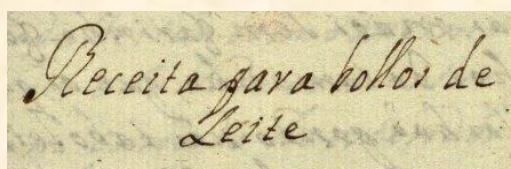 Receita para bollos de
Leite